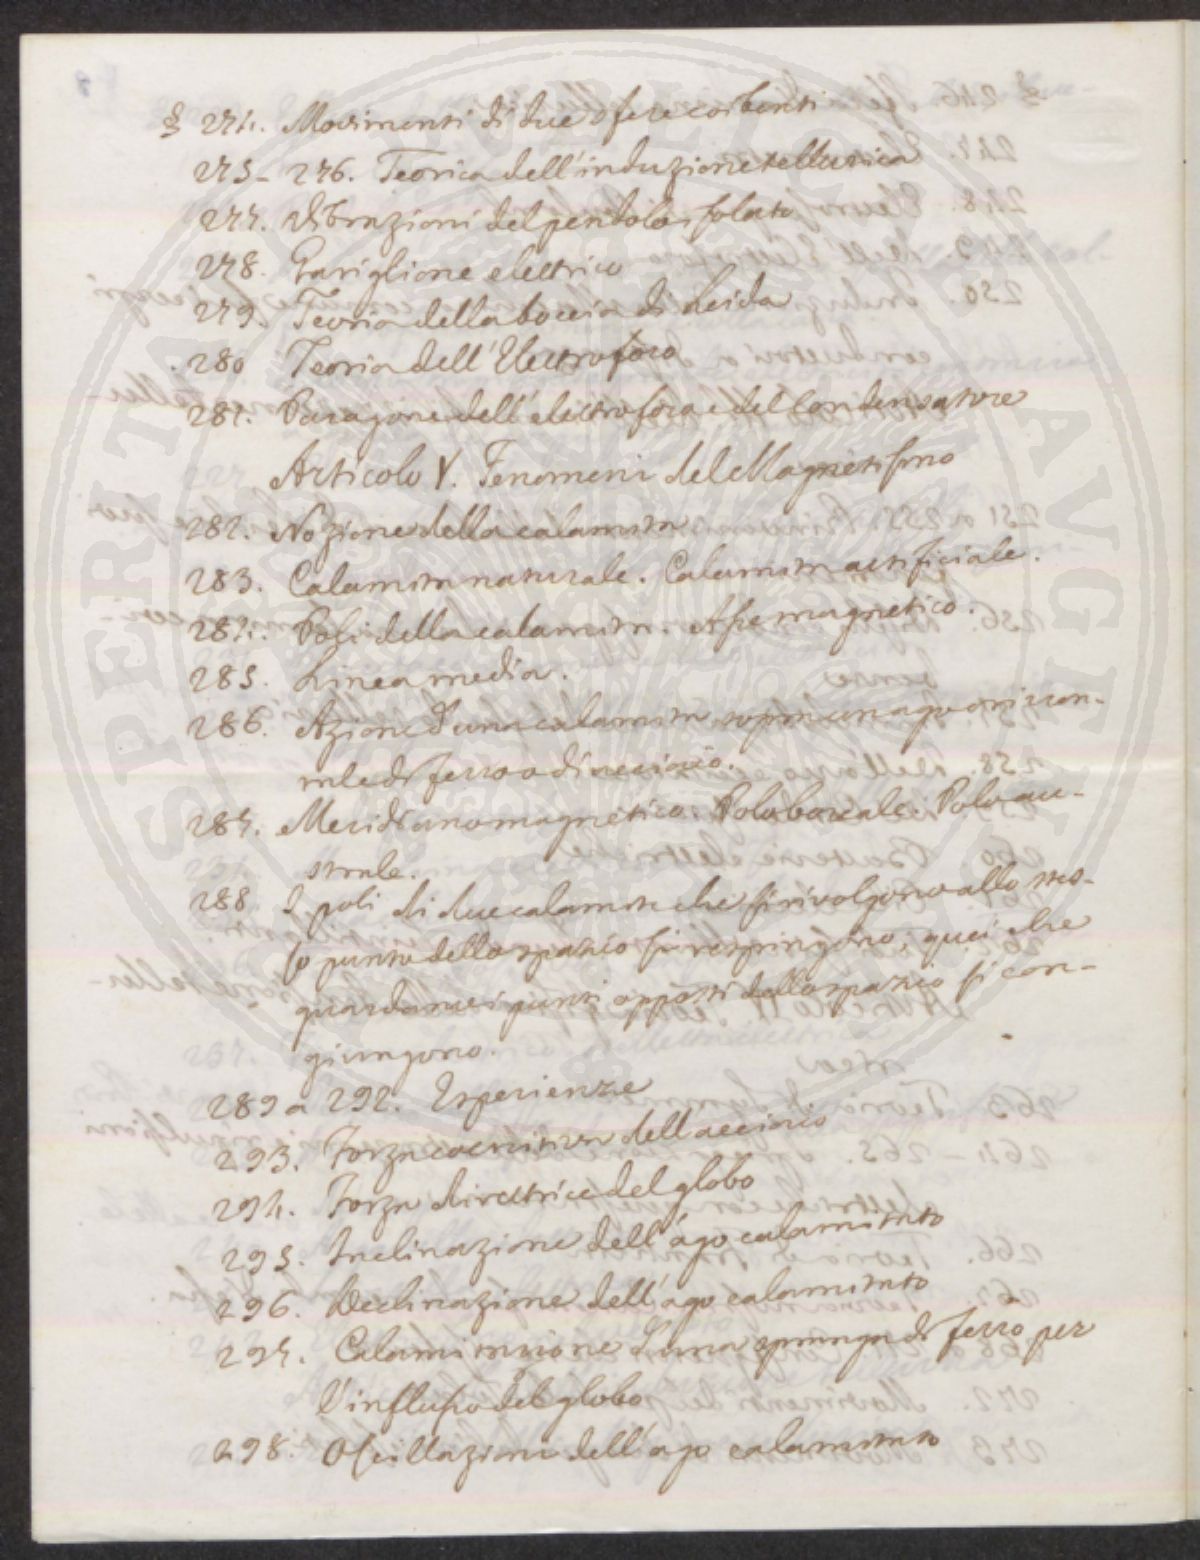 § 274. Movimenti di due sfere coibenti
275 - 276. Teorica dell'induzione tellurica
277. Vibrazioni del pendolo isolato
278. Gariglione elettrico
279. Teoria della boccia di Leida
280 Teoria dell'Elettroforo
281. Paragone dell'elettroforo e del Condensatore
Articolo V. Fenomeni del Magnetismo
282. Nozione della calamita
283. Calamita naturale. Calamita artificiale.
284. Poli della calamita. Asse magnetico.
285. Linea media.
286. Azione d'una calamita sopra un ago orizzon-
tale di ferro o di acciaio.
287. Meridiano magnetico. Polo boreale. Polo au-
strale.
288. I poli di due calamite che si rivolgono allo stes-
so punto dello spazio si respingono, quei che
guardano i punti opposti dello spazio si con-
giungono.
289 a 292. Esperienze
293. Forza coercitiva dell'acciaio
294. Forza direttrice del globo
295. Inclinazione dell'ago calamitato
296. Declinazione dell'ago calamitato
297. Calamitazione d'una spranga di ferro per
l'influsso del globo
298. Oscillazioni dell'ago calamitato
SPERITA PVBLICE AVGEAM